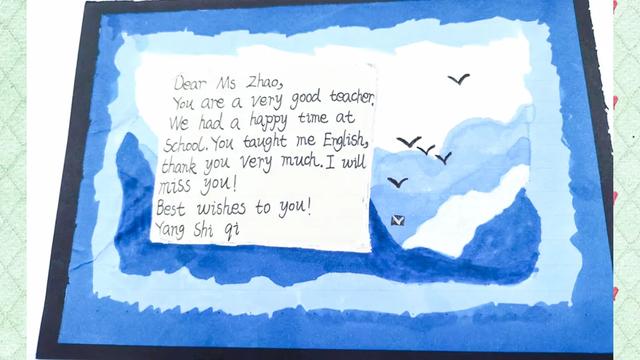 Dear Ms Zhao,
You are a very good teacher.
We had a happy time at
school. You taught me English,
thank you very much. I will
miss you!
Best wishes to you!
Yang Shi qi